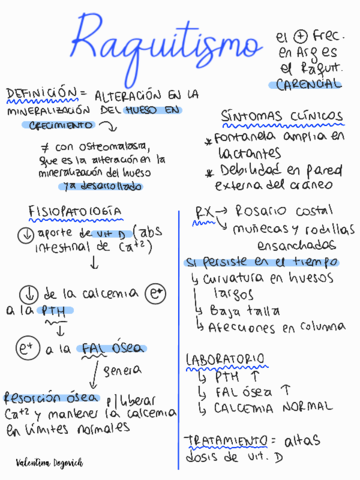 Raquitismo
el ⊕ Frec.
en Arg es
el Raquit.
CARENCIAL
DEFINICIÓN = ALTERACIÓN EN LA
MINERALIZACIÓN DEL HUESO EN
CRECIMIENTO
≠ con osteomalasia,
que es la alteración en la
mineralización del hueso
ya desarrollado
SÍNTOMAS CLÍNICOS
* Fontanela amplia en
lactantes
* Debilidad en pared
externa del cráneo
FISIOPATOLOGÍA
↓ aporte de vit D (abs
intestinal de Ca+2)
↓ de la calcemia e+
a la PTH
e+ a la FAL ósea
genera
Resorción ósea p/ liberar
Ca+2 y mantener la calcemia
en límites normales
Valentina Dogovich
RX → Rosario costal
muñecas y rodillas
ensanchados
Si persiste en el tiempo
↳ curvatura en huesos
largos
↳ Baja talla
↳ Afecciones en columna
LABORATORIO
↳ PTH ↑
↳ FAL ósea ↑
↳ CALCEMIA NORMAL
TRATAMIENTO = altas
dosis de vit. D